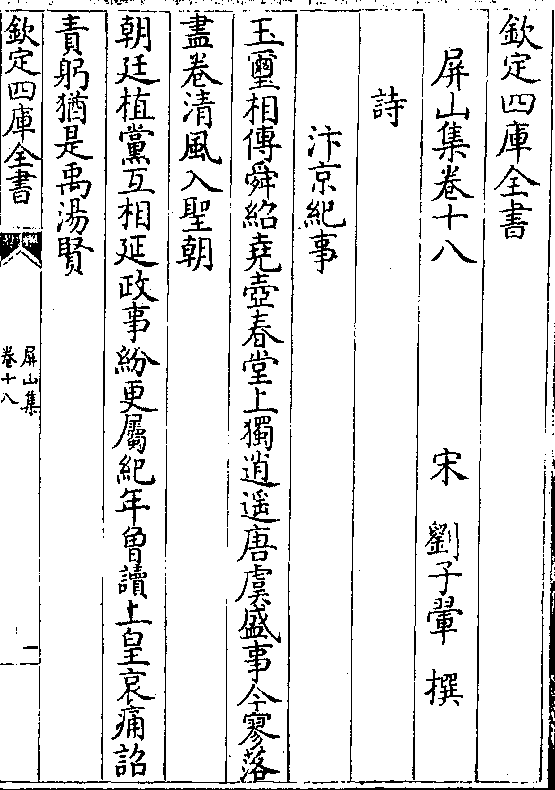 欽定四庫全書
屏山集卷十八 宋 劉子翬 撰
詩
汴京紀事
玉璽相傳舜紹堯壺春堂上獨逍遥唐虞盛事今寥落
盡卷清風入聖朝
朝廷植黨互相延政事紛更屬紀年曾讀上皇哀痛詔
責躬猶是禹湯賢
欽定四庫全書
屏山集
卷十八
一